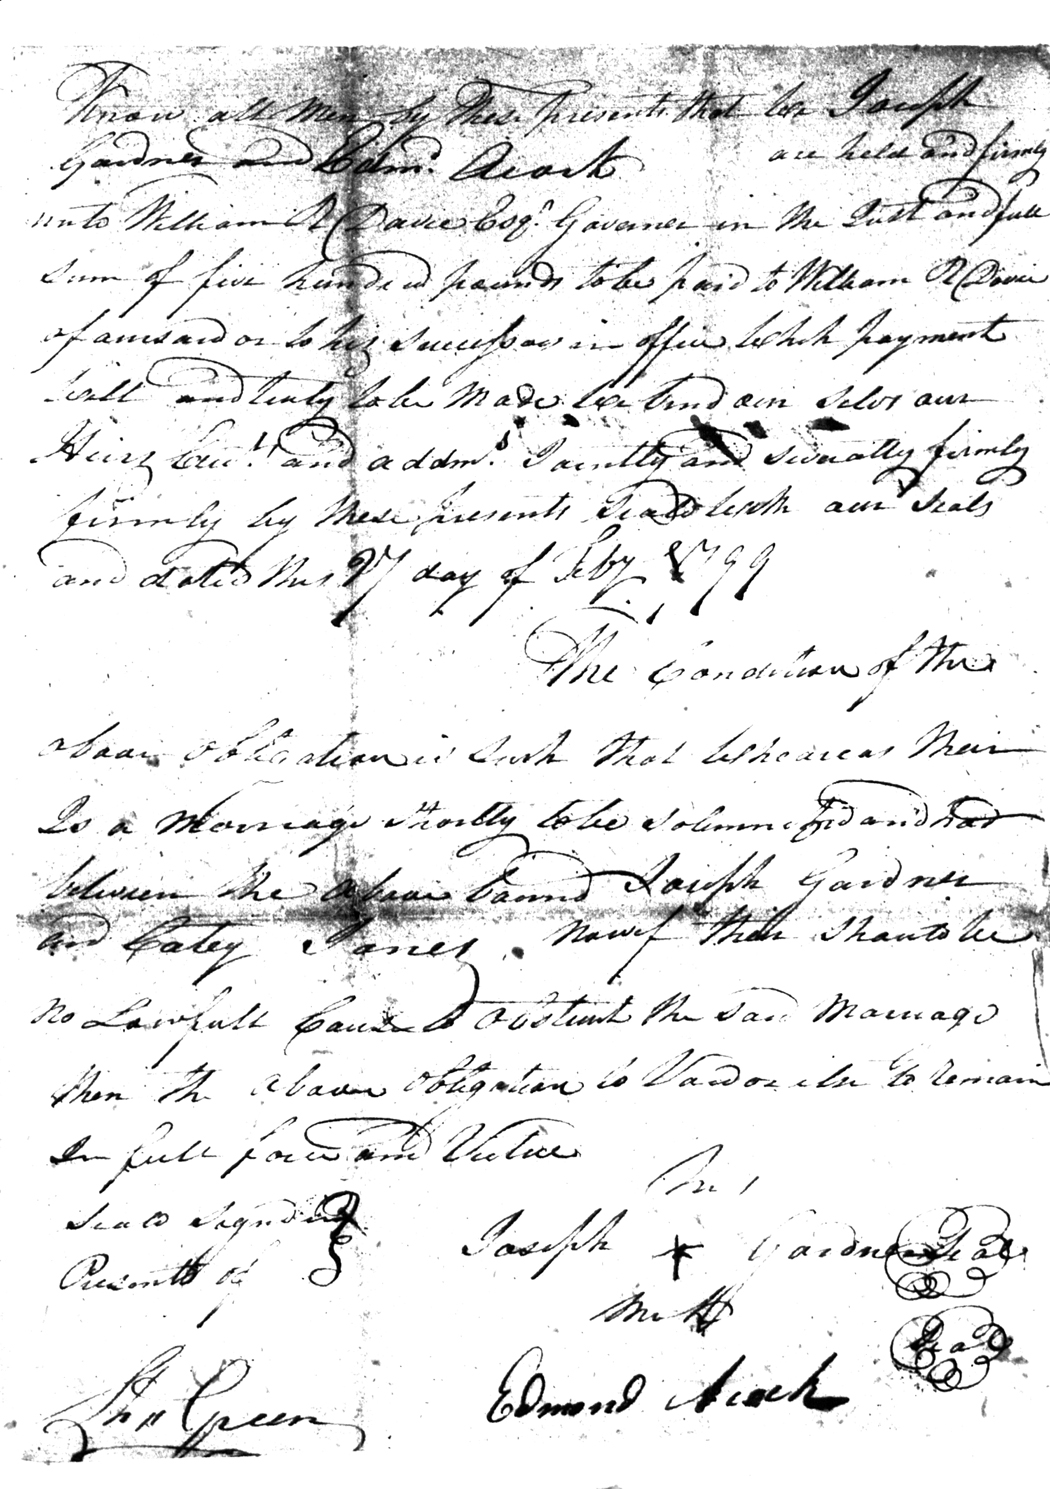 Know all Men by These Presents that we Joseph
Gardner and Edmd. Acock are held and firmly
unto William R Davie Esqr. Governer in the Just and full
sum of five hundred pounds to be paid to William R Davie
afoursaid or to his successors in office which payment
well and truly to be Made we bind our selvs our
Heirs Exus. and addms. Jointly and severally firmly
firmly by these presents seald with our seals
and dated this 27 day of Feby. 1799
The Condition of the
above obligation is such that whareas their
Is a Marriage Shortly to be solemnized and had
between the above bound Joseph Gardner
and Catey Jones, now if their should be
no Lawfull Cause to obstruct the said Marriage
then the above obligation to Void or else to remain
In full force and Virtue
seald signd in
Presents of
his
Joseph X Gardner Seal
mark
Seal
Edmond Acock
Thos Green